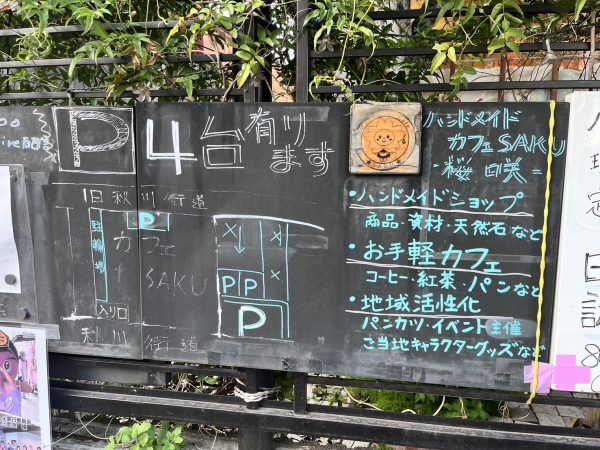 P 4台 有ります
ハンドメイド
カフェ SAKU
= 桜咲 =
旧秋川街道
駐輪場
P
カフェ
SAKU
入り口
秋川 街道
X
X
X
P P
P
・ハンドメイドショップ
商品・資材・天然石など
・お手軽カフェ
コーヒー・紅茶・パンなど
・地域活性化
パンカツ・イベント主催
ご当地キャラクターグッズなど